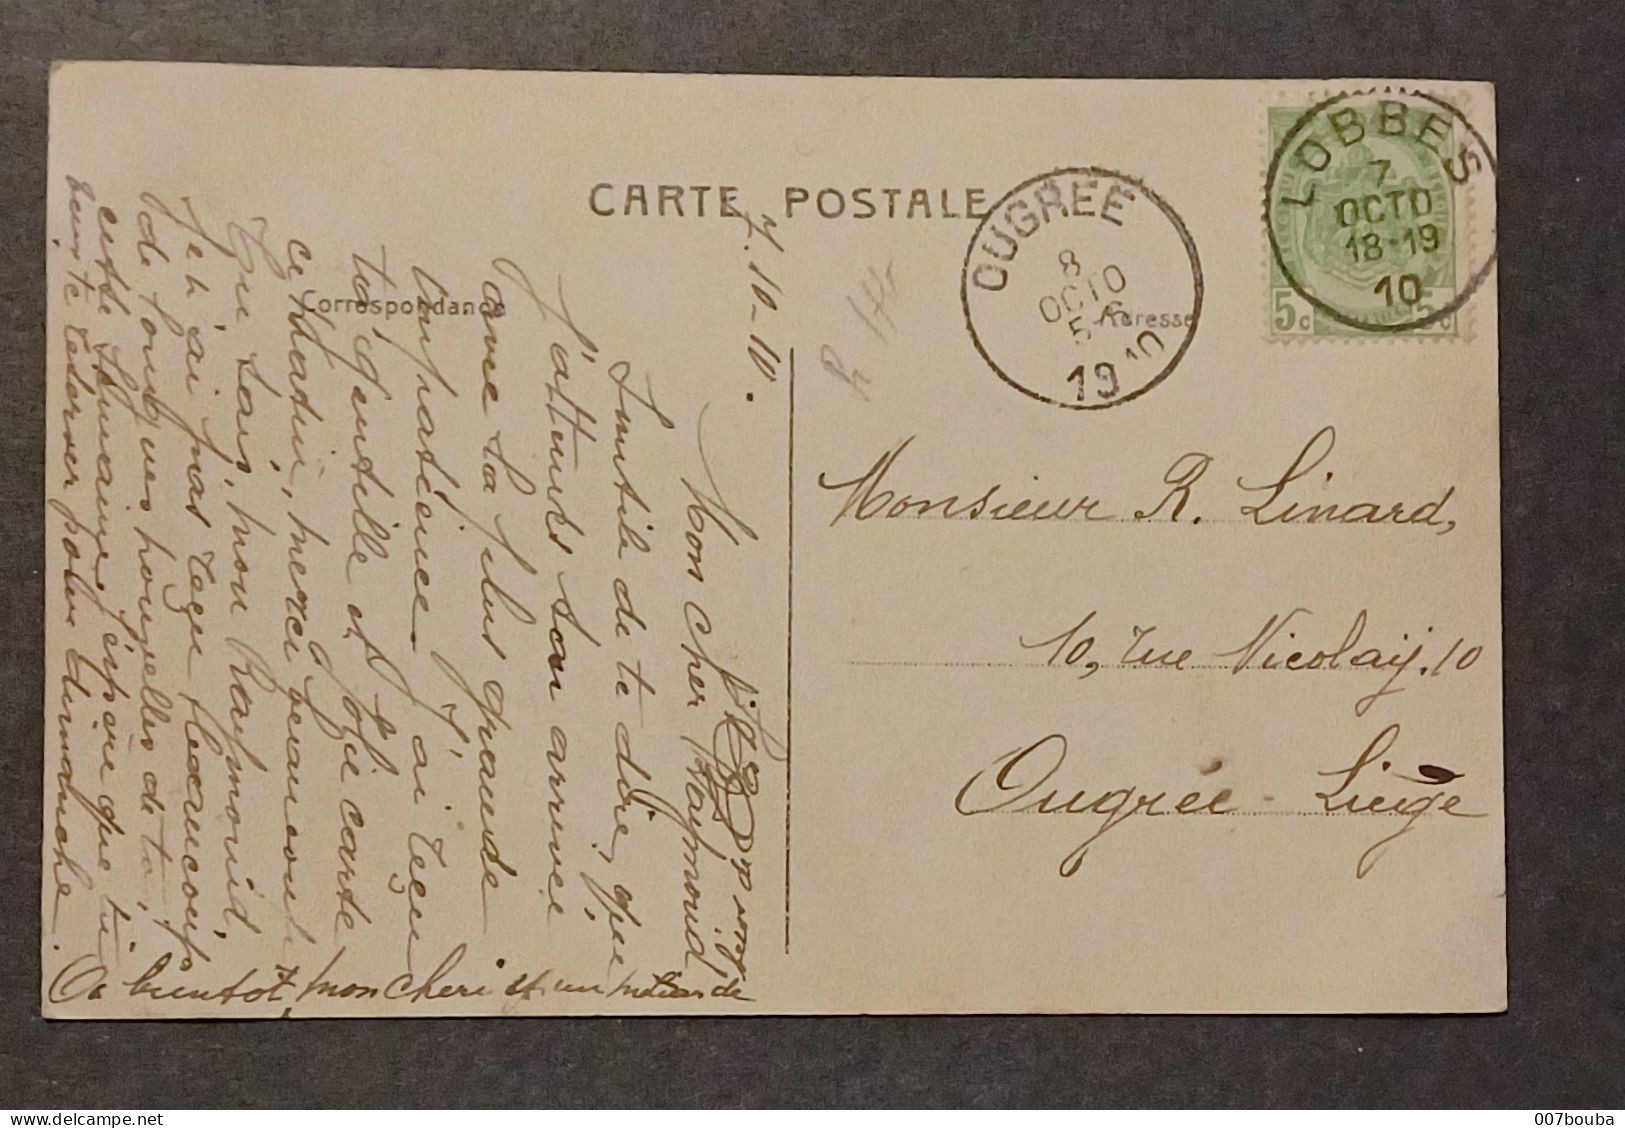 CARTE POSTALE
Correspondance
Adresse
OUGREE
8
OCTO
5-6
1910
LOBBES
7
OCTO
18-19
10
5c 5c
Monsieur R. Linard,
10, rue Nicolaÿ, 10
Ougrée - Liège
7-10-10.
Mon cher Raymond
Inutile de te dire, que
j'attends ton arrivée
avec la plus grande
impatience. J'ai reçu
ta gentille et jolie carte
ce matin, merci beaucoup.
Tu sais, mon Raymond,
je n'ai pas reçu beaucoup
de longues nouvelles de toi,
cette semaine, j'espère que tu
pour dimanche.
A bientôt, mon cheri et un de
007bouba